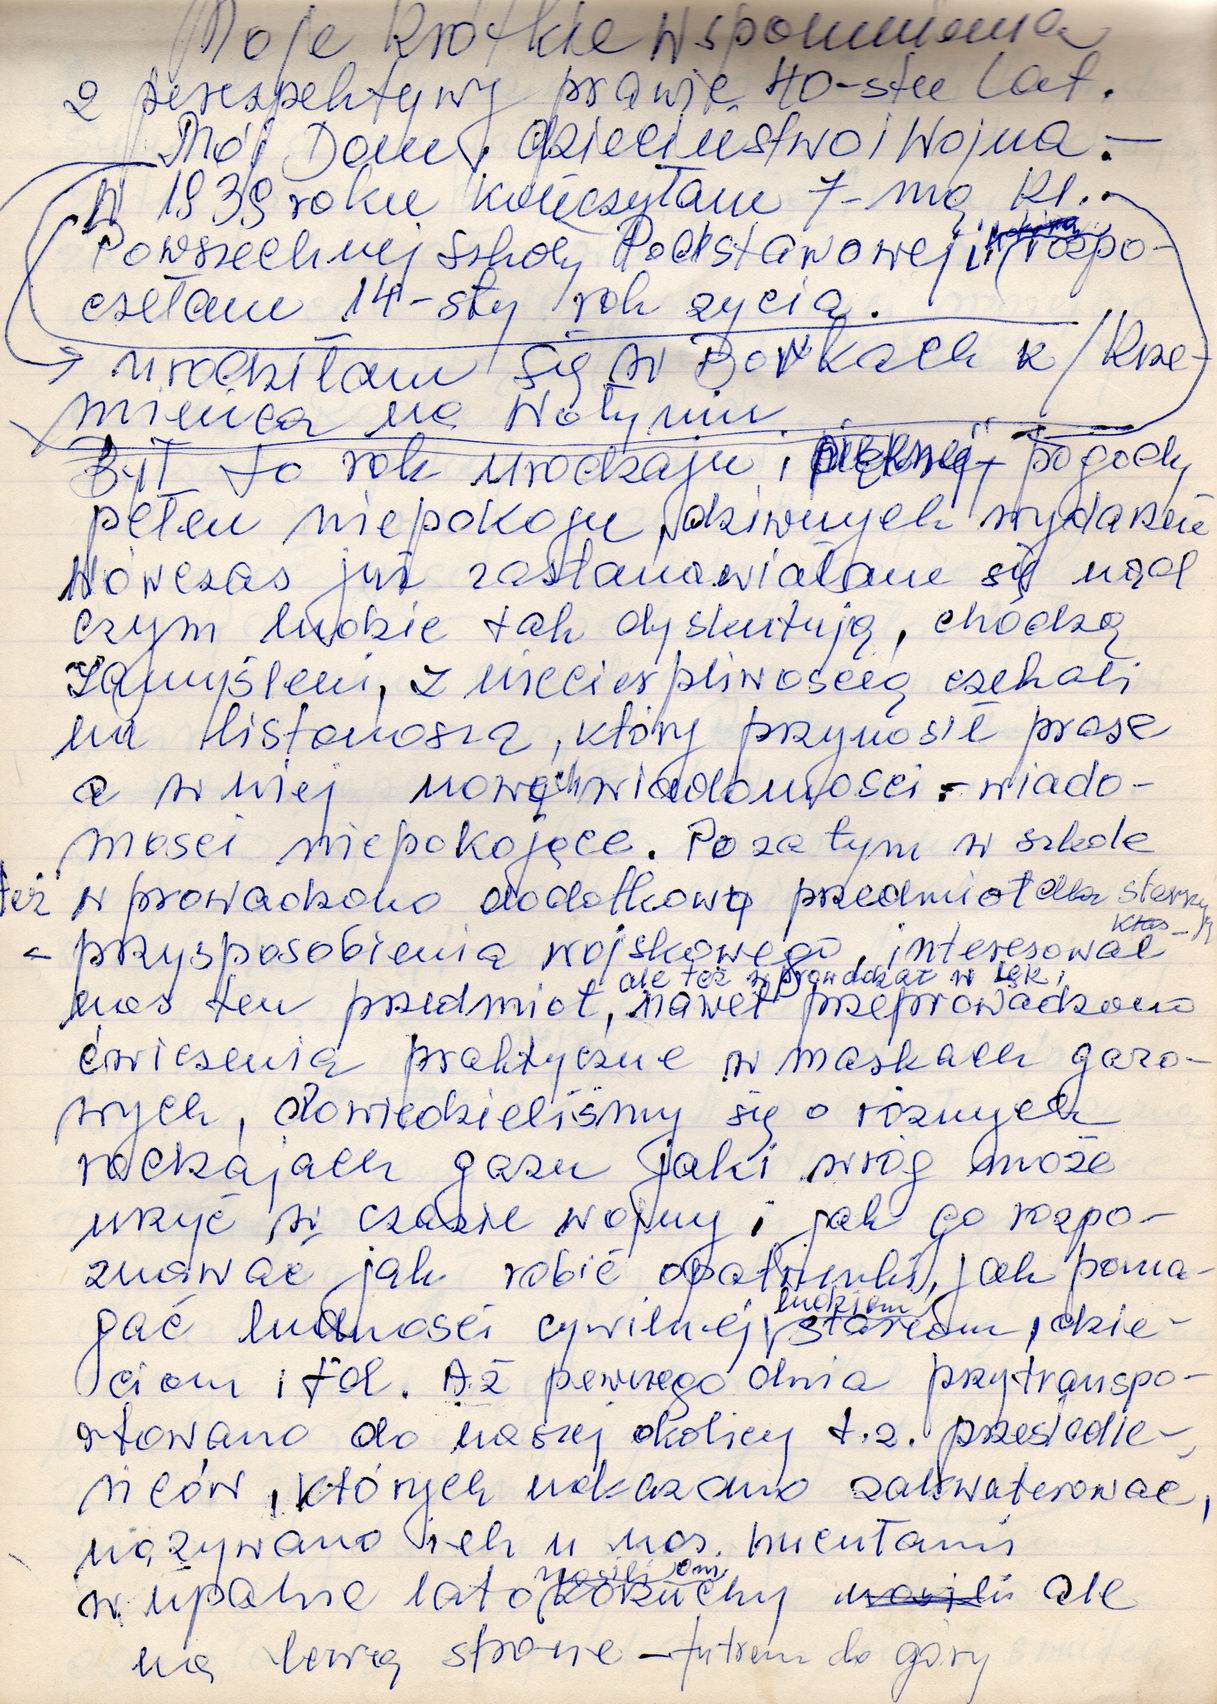 Moje krótkie wspomnienia
z perespektywy prawie 40-stu lat.
Mój Dom, dzieciństwo i Wojna.—
W 1939 roku kończyłam 7-mą kl.
Powszechnej Szkoły Podstawowej i rozpo-
czełam 14-sty rok życia.
urodziłam się w Borkach k/Krze-
mieńca na Wołyniu
Był to rok urodzaju i pięknej pogody
pełen niepokoju, dziwnych wydarzeń
Wówczas już zastanawiałam się nad
czym ludzie tak dyskutują, chodzą
zamyśleni, z niecierpliwością czekali
na listonosza, który przynosił prasę
a w niej nowych wiadomości - wiado-
mości niepokojące. Poza tym w szkole
też wprowadzono dodatkowy przedmiot dla starszych
klas -
przysposobienia wojskowego, interesował
ale też wprowadzał w lęk,
nas ten przedmiot, nawet przeprowadzono
ćwiczenia praktyczne w maskach gazo-
wych, dowiedzieliśmy się o różnych
rodzajach gazu jaki wróg może
użyć w czasie wojny i jak go rozpo-
znawać jak robić opatrunki, jak poma-
ludziom
gać ludności cywilnej, starcom, dzie-
ciom itd. Aż pewnego dnia przytranspo-
rtowano do naszej okolicy t.z. przesiedle-
ńców, których nakazano zakwaterować,
nazywano ich u nas
nosili
w upalne lato kożuchy nosili ale
na lewą stronę - futrem do góry